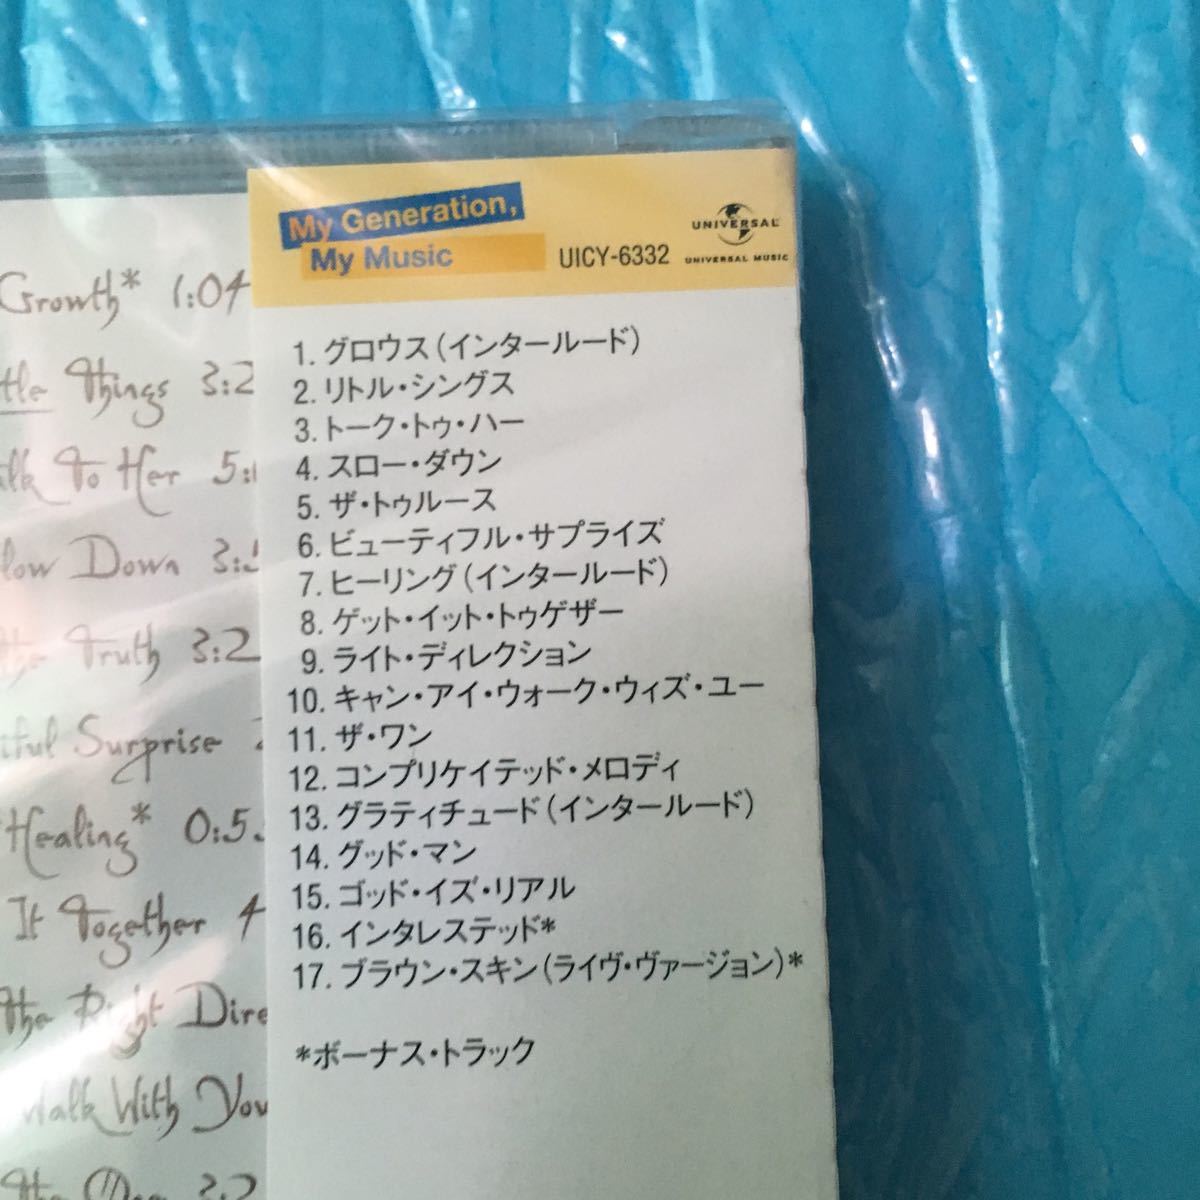 My Generation,
My Music
UICY-6332
UNIVERSAL
UNIVERSAL MUSIC
1. グロウス(インタールード)
2. リトル・シングス
3. トーク・トゥ・ハー
4. スロー・ダウン
5. ザ・トゥルース
6. ビューティフル・サプライズ
7. ヒーリング(インタールード)
8. ゲット・イット・トゥゲザー
9. ライト・ディレクション
10. キャン・アイ・ウォーク・ウィズ・ユー
11. ザ・ワン
12. コンプリケイテッド・メロディ
13. グラティチュード(インタールード)
14. グッド・マン
15. ゴッド・イズ・リアル
16. インタレステッド*
17. ブラウン・スキン(ライヴ・ヴァージョン)*
*ボーナス・トラック
Growth* 1:04
Things 3:2
To Her 5:
Down 3:
Truth 3:2
Surprise
Healing* 0:5
It Together 4
the Right Dire
Walk With You
the One 3:2